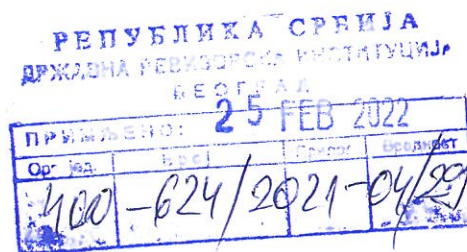 РЕПУБЛИКА СРБИЈА
ДРЖАВНА РЕВИЗОРСКА ИНСТИТУЦИЈА
БЕОГРАД
ПРИМЉЕНО: 25 FEB 2022
Орг. јед. Број Прилог Вредност
400-624/2021-04/29